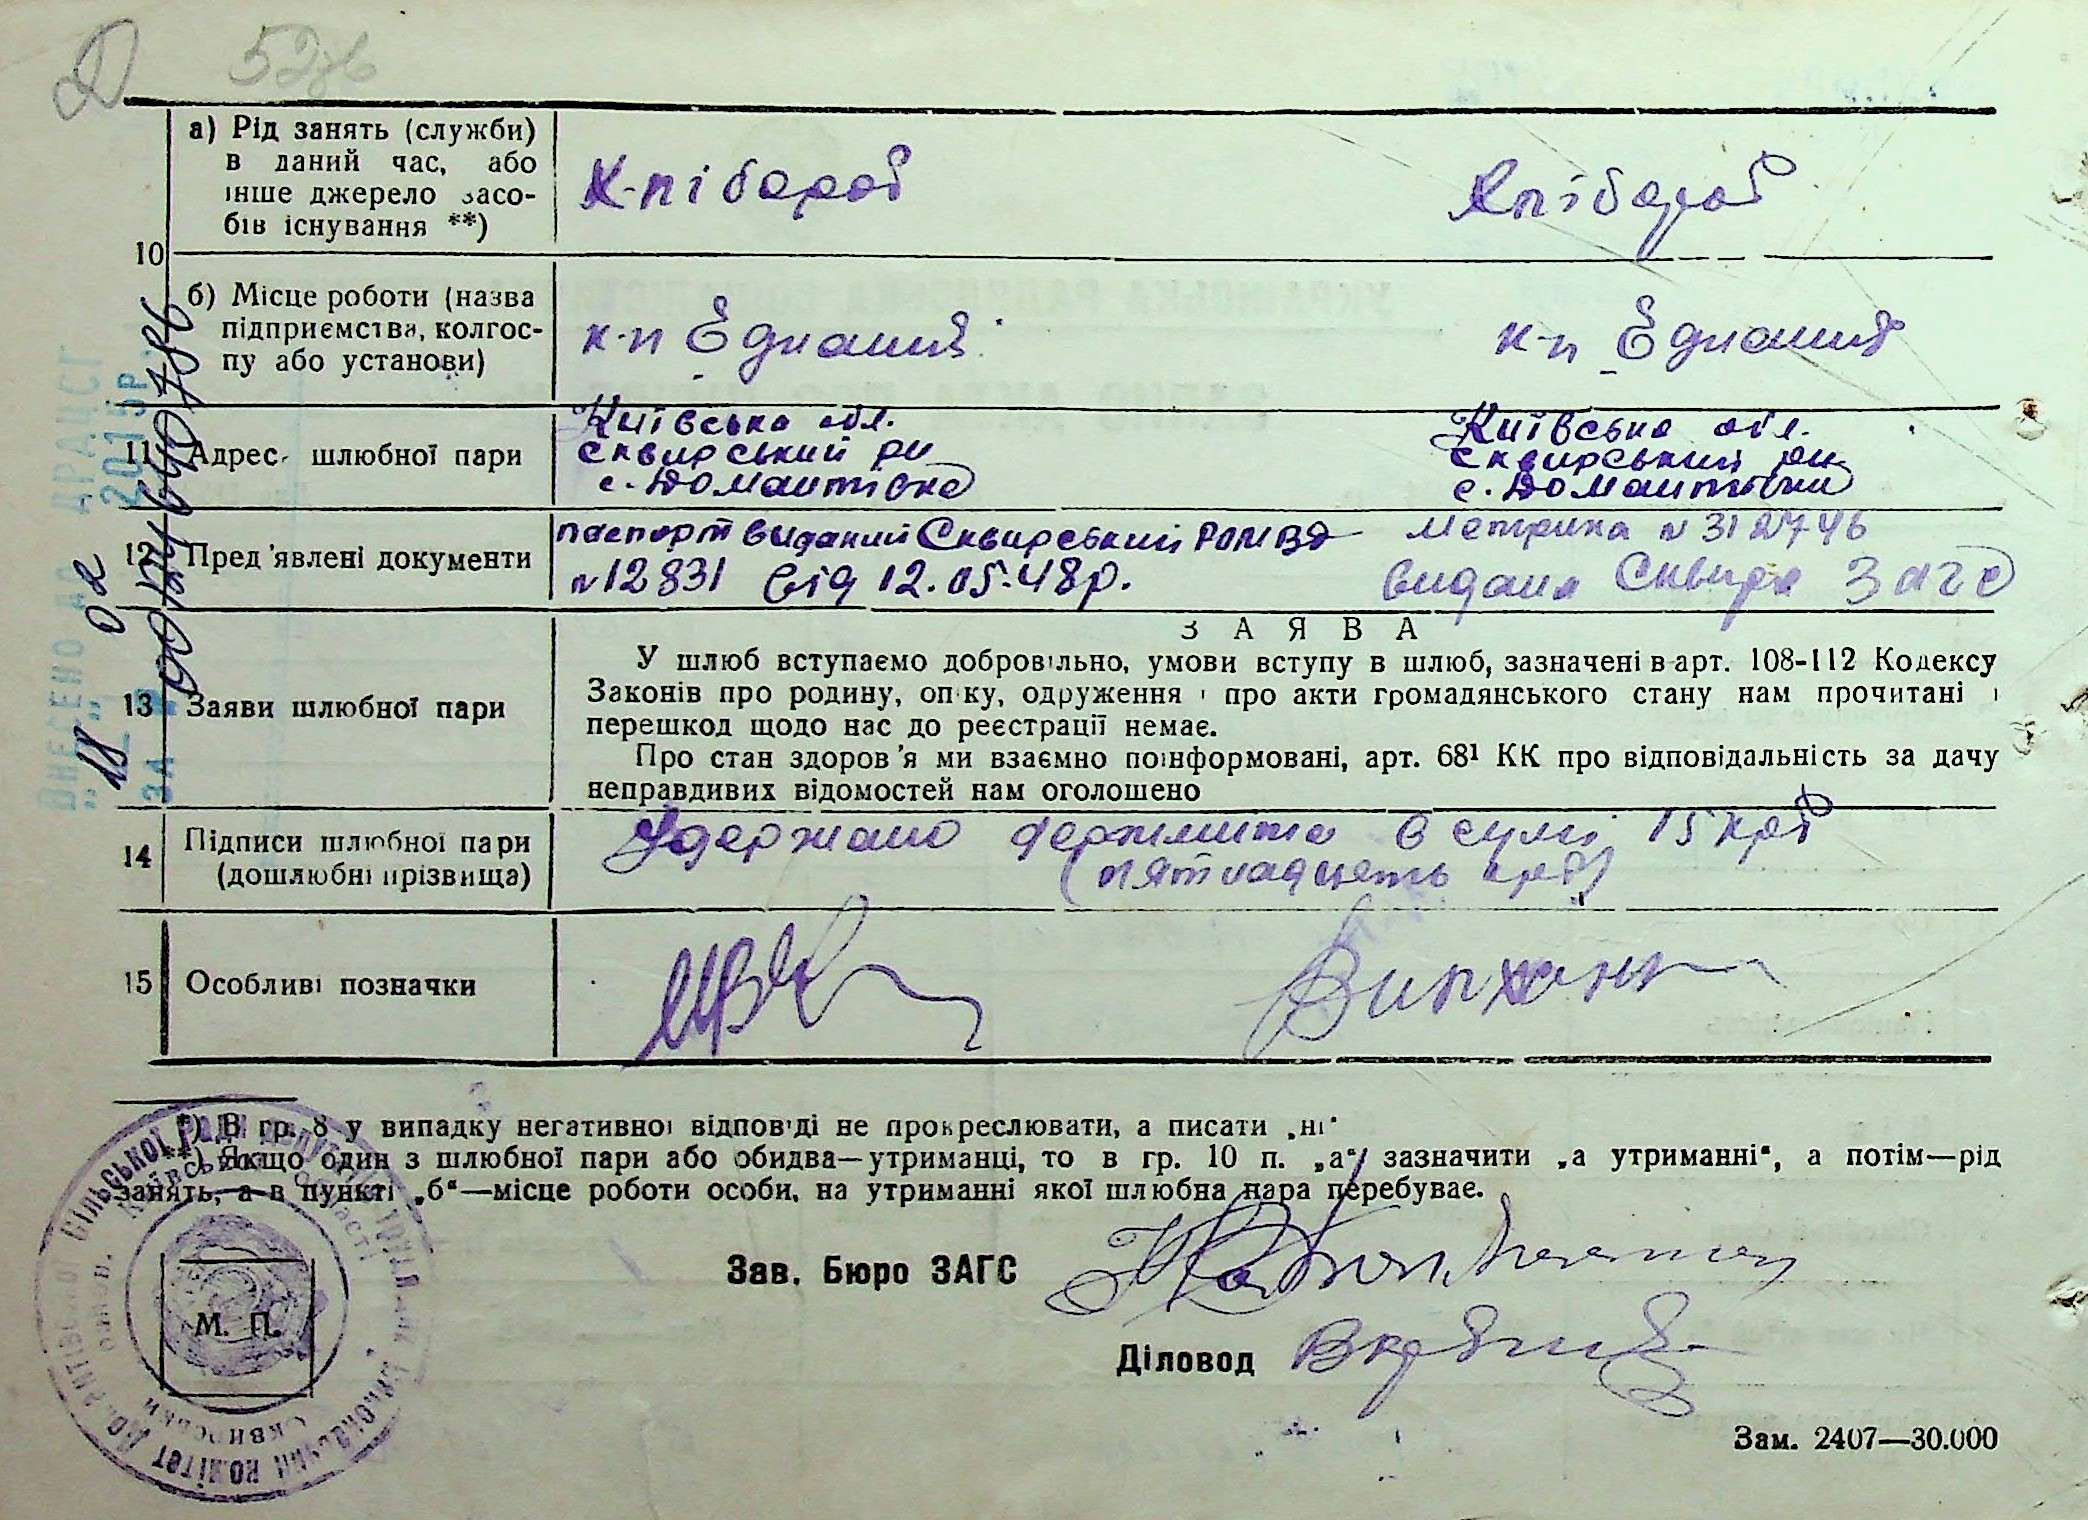 52зв
а) Рід занять (служби) в даний час, або інше джерело засобів існування **)
Хлібороб
Хлібороб
10
б) Місце роботи (назва підприємства, колгоспу або установи)
к-п Єднання
к-п Єднання
11 Адрес шлюбної пари
Київська обл.
Сквирський рн
с. Домантівка
Київська обл.
Сквирський рн
с. Домантівка
12 Пред'явлені документи
паспорт виданий Сквирський РОМВД
№ 12831 від 12.05.48р.
Метрика № 312746
видана Сквира Загс
13 Заяви шлюбної пари
ЗАЯВА
У шлюб вступаємо добровільно, умови вступу в шлюб, зазначені в арт. 108-112 Кодексу
Законів про родину, опіку, одруження і про акти громадянського стану нам прочитані і
перешкод щодо нас до реєстрації немає.
Про стан здоров'я ми взаємно поінформовані, арт. 68¹ КК про відповідальність за дачу
неправдивих відомостей нам оголошено
14 Підписи шлюбної пари (дошлюбні прізвища)
Удержано держмита в сумі 15 крб
(пятнадцять крб)
15 Особливі позначки
*) В гр. 8 у випадку негативної відповіді не прокреслювати, а писати „ні"
**) Якщо один з шлюбної пари або обидва—утриманці, то в гр. 10 п. „а" зазначити „а утриманні", а потім—рід
занять, а в пункті „б"—місце роботи особи, на утриманні якої шлюбна пара перебуває.
Зав. Бюро ЗАГС
М. П.
Діловод
Зам. 2407—30.000
ВНЕСЕНО ДО ДРАЦСГ
"18" 02 2015р.
ЗА №